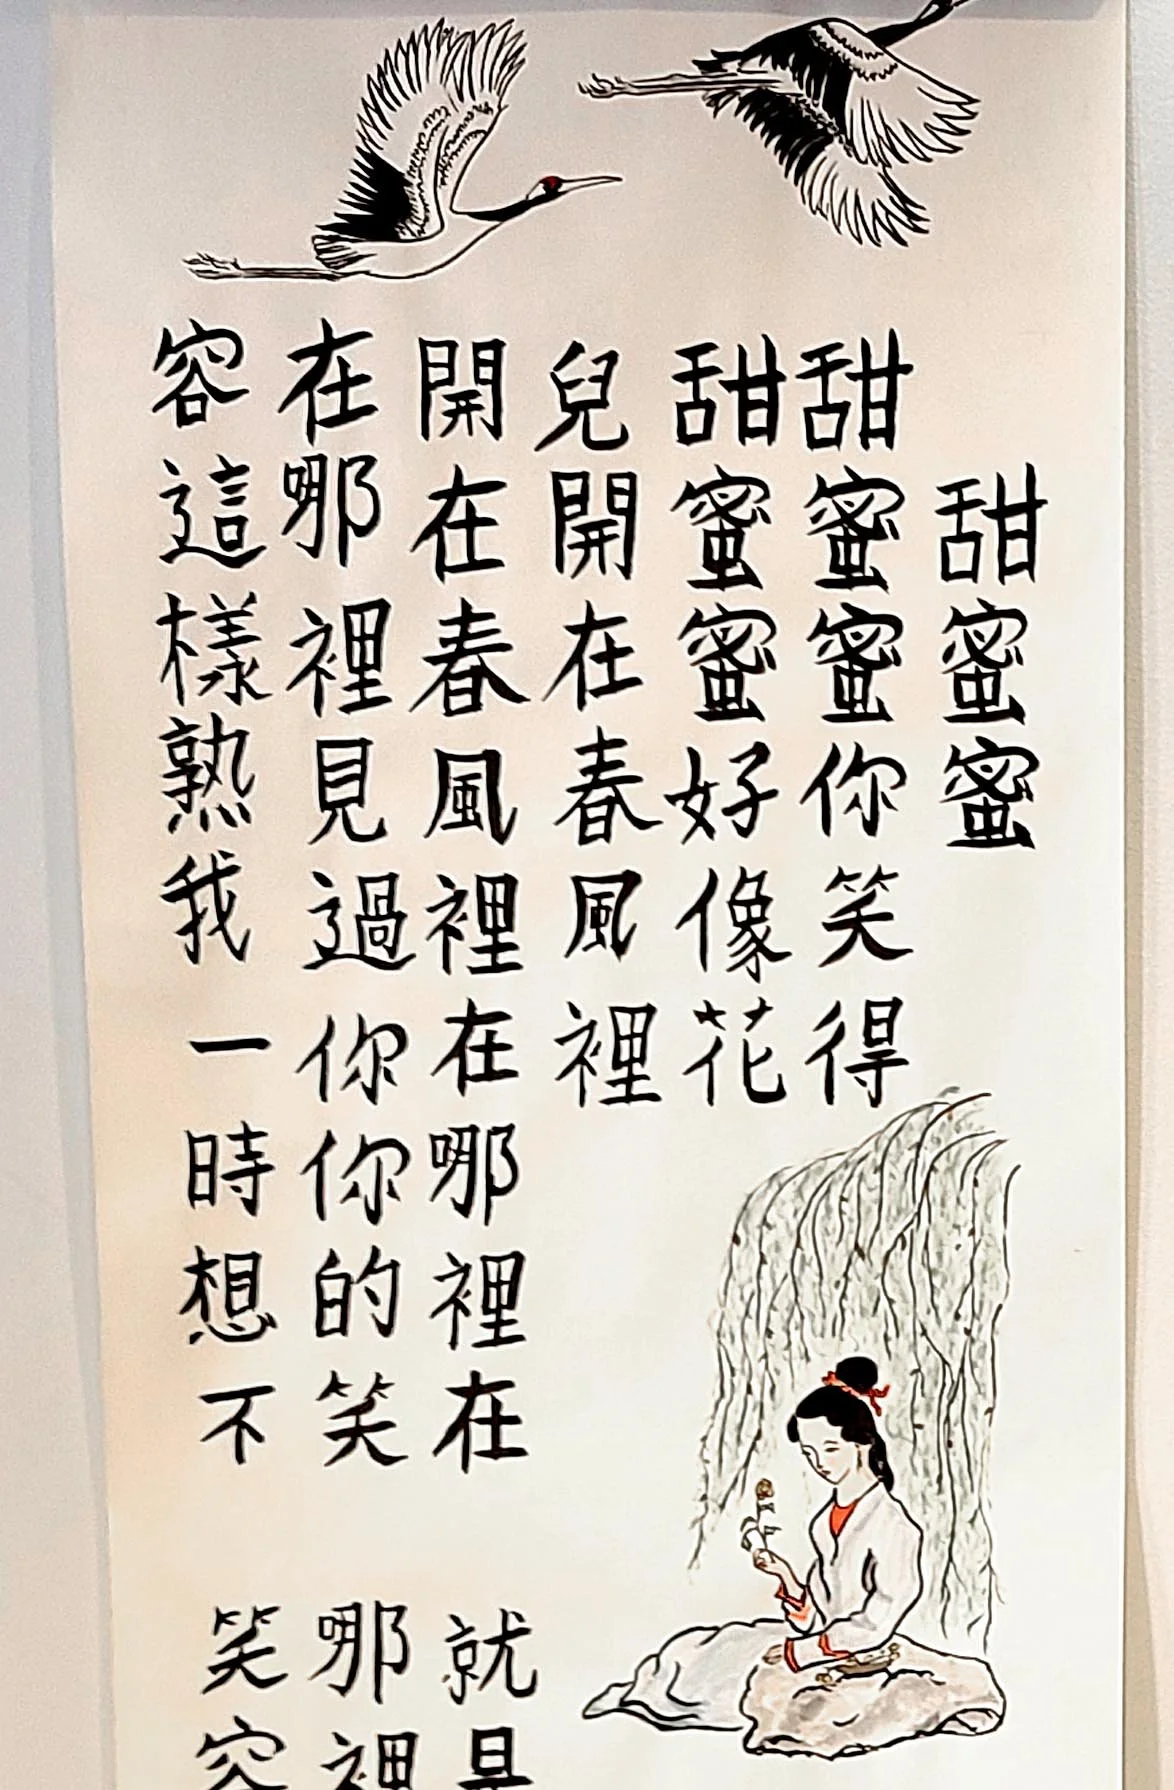 甜蜜蜜
甜蜜蜜你笑得
甜蜜蜜好像花
兒開在春風裡
開在春風裡在哪裡在
在哪裡見過你你的笑
容這樣熟我一時想不
就是
哪裡
笑容